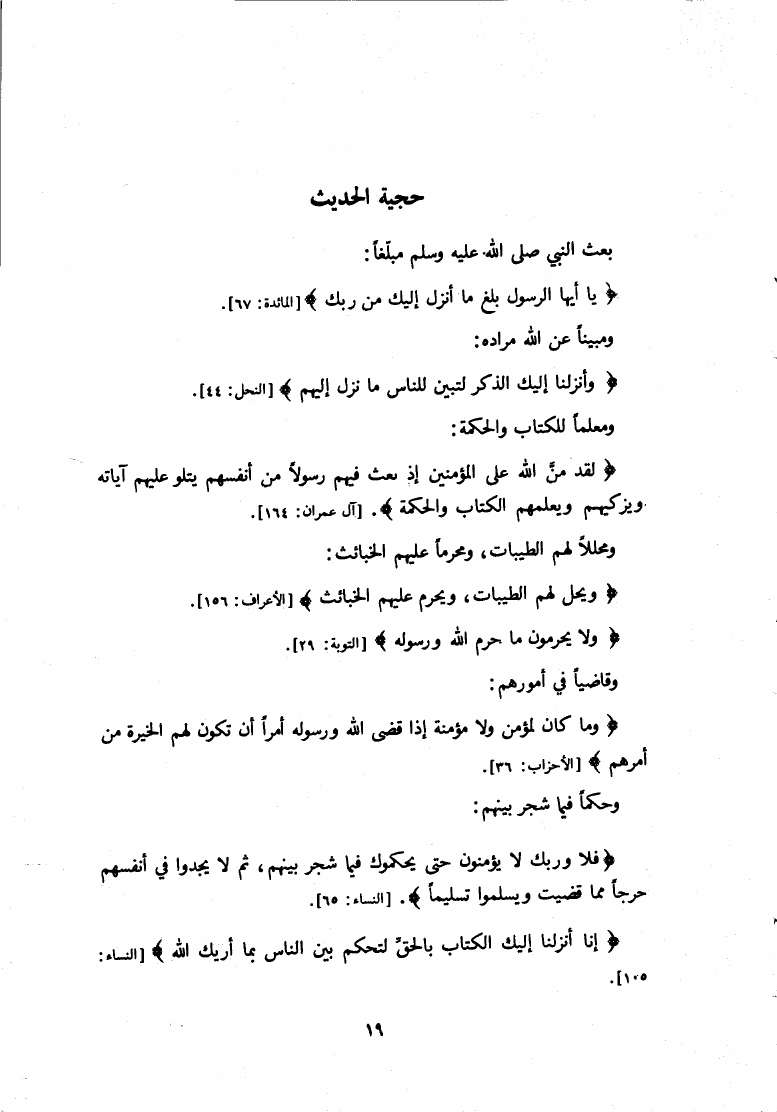 حجية الحديث
بعث النبي صلى الله عليه وسلم مبلّغاً:
﴿ يا أيها الرسول بلغ ما أنزل إليك من ربك ﴾ [المائدة: ٦٧].
ومبيناً عن الله مراده:
﴿ وأنزلنا إليك الذكر لتبين للناس ما نزل إليهم ﴾ [النحل: ٤٤].
ومعلماً للكتاب والحكمة:
﴿ لقد منَّ الله على المؤمنين إذ بعث فيهم رسولاً من أنفسهم يتلو عليهم آياته
ويزكيهم ويعلمهم الكتاب والحكمة ﴾. [آل عمران: ١٦٤].
ومحللاً لهم الطيبات، ومحرماً عليهم الخبائث:
﴿ ويحل لهم الطيبات، ويحرم عليهم الخبائث ﴾ [الأعراف: ١٥٦].
﴿ ولا يحرمون ما حرم الله ورسوله ﴾ [التوبة: ٢٩].
وقاضياً في أمورهم:
﴿ وما كان لمؤمن ولا مؤمنة إذا قضى الله ورسوله أمراً أن تكون لهم الخيرة من
أمرهم ﴾ [الأحزاب: ٣٦].
وحكماً فيما شجر بينهم:
﴿ فلا وربك لا يؤمنون حتى يحكموك فيما شجر بينهم، ثم لا يجدوا في أنفسهم
حرجاً مما قضيت ويسلموا تسليماً ﴾. [النساء: ٦٥].
﴿ إنا أنزلنا إليك الكتاب بالحقّ لتحكم بين الناس بما أريك الله ﴾ [النساء:
١٠٥].
١٩